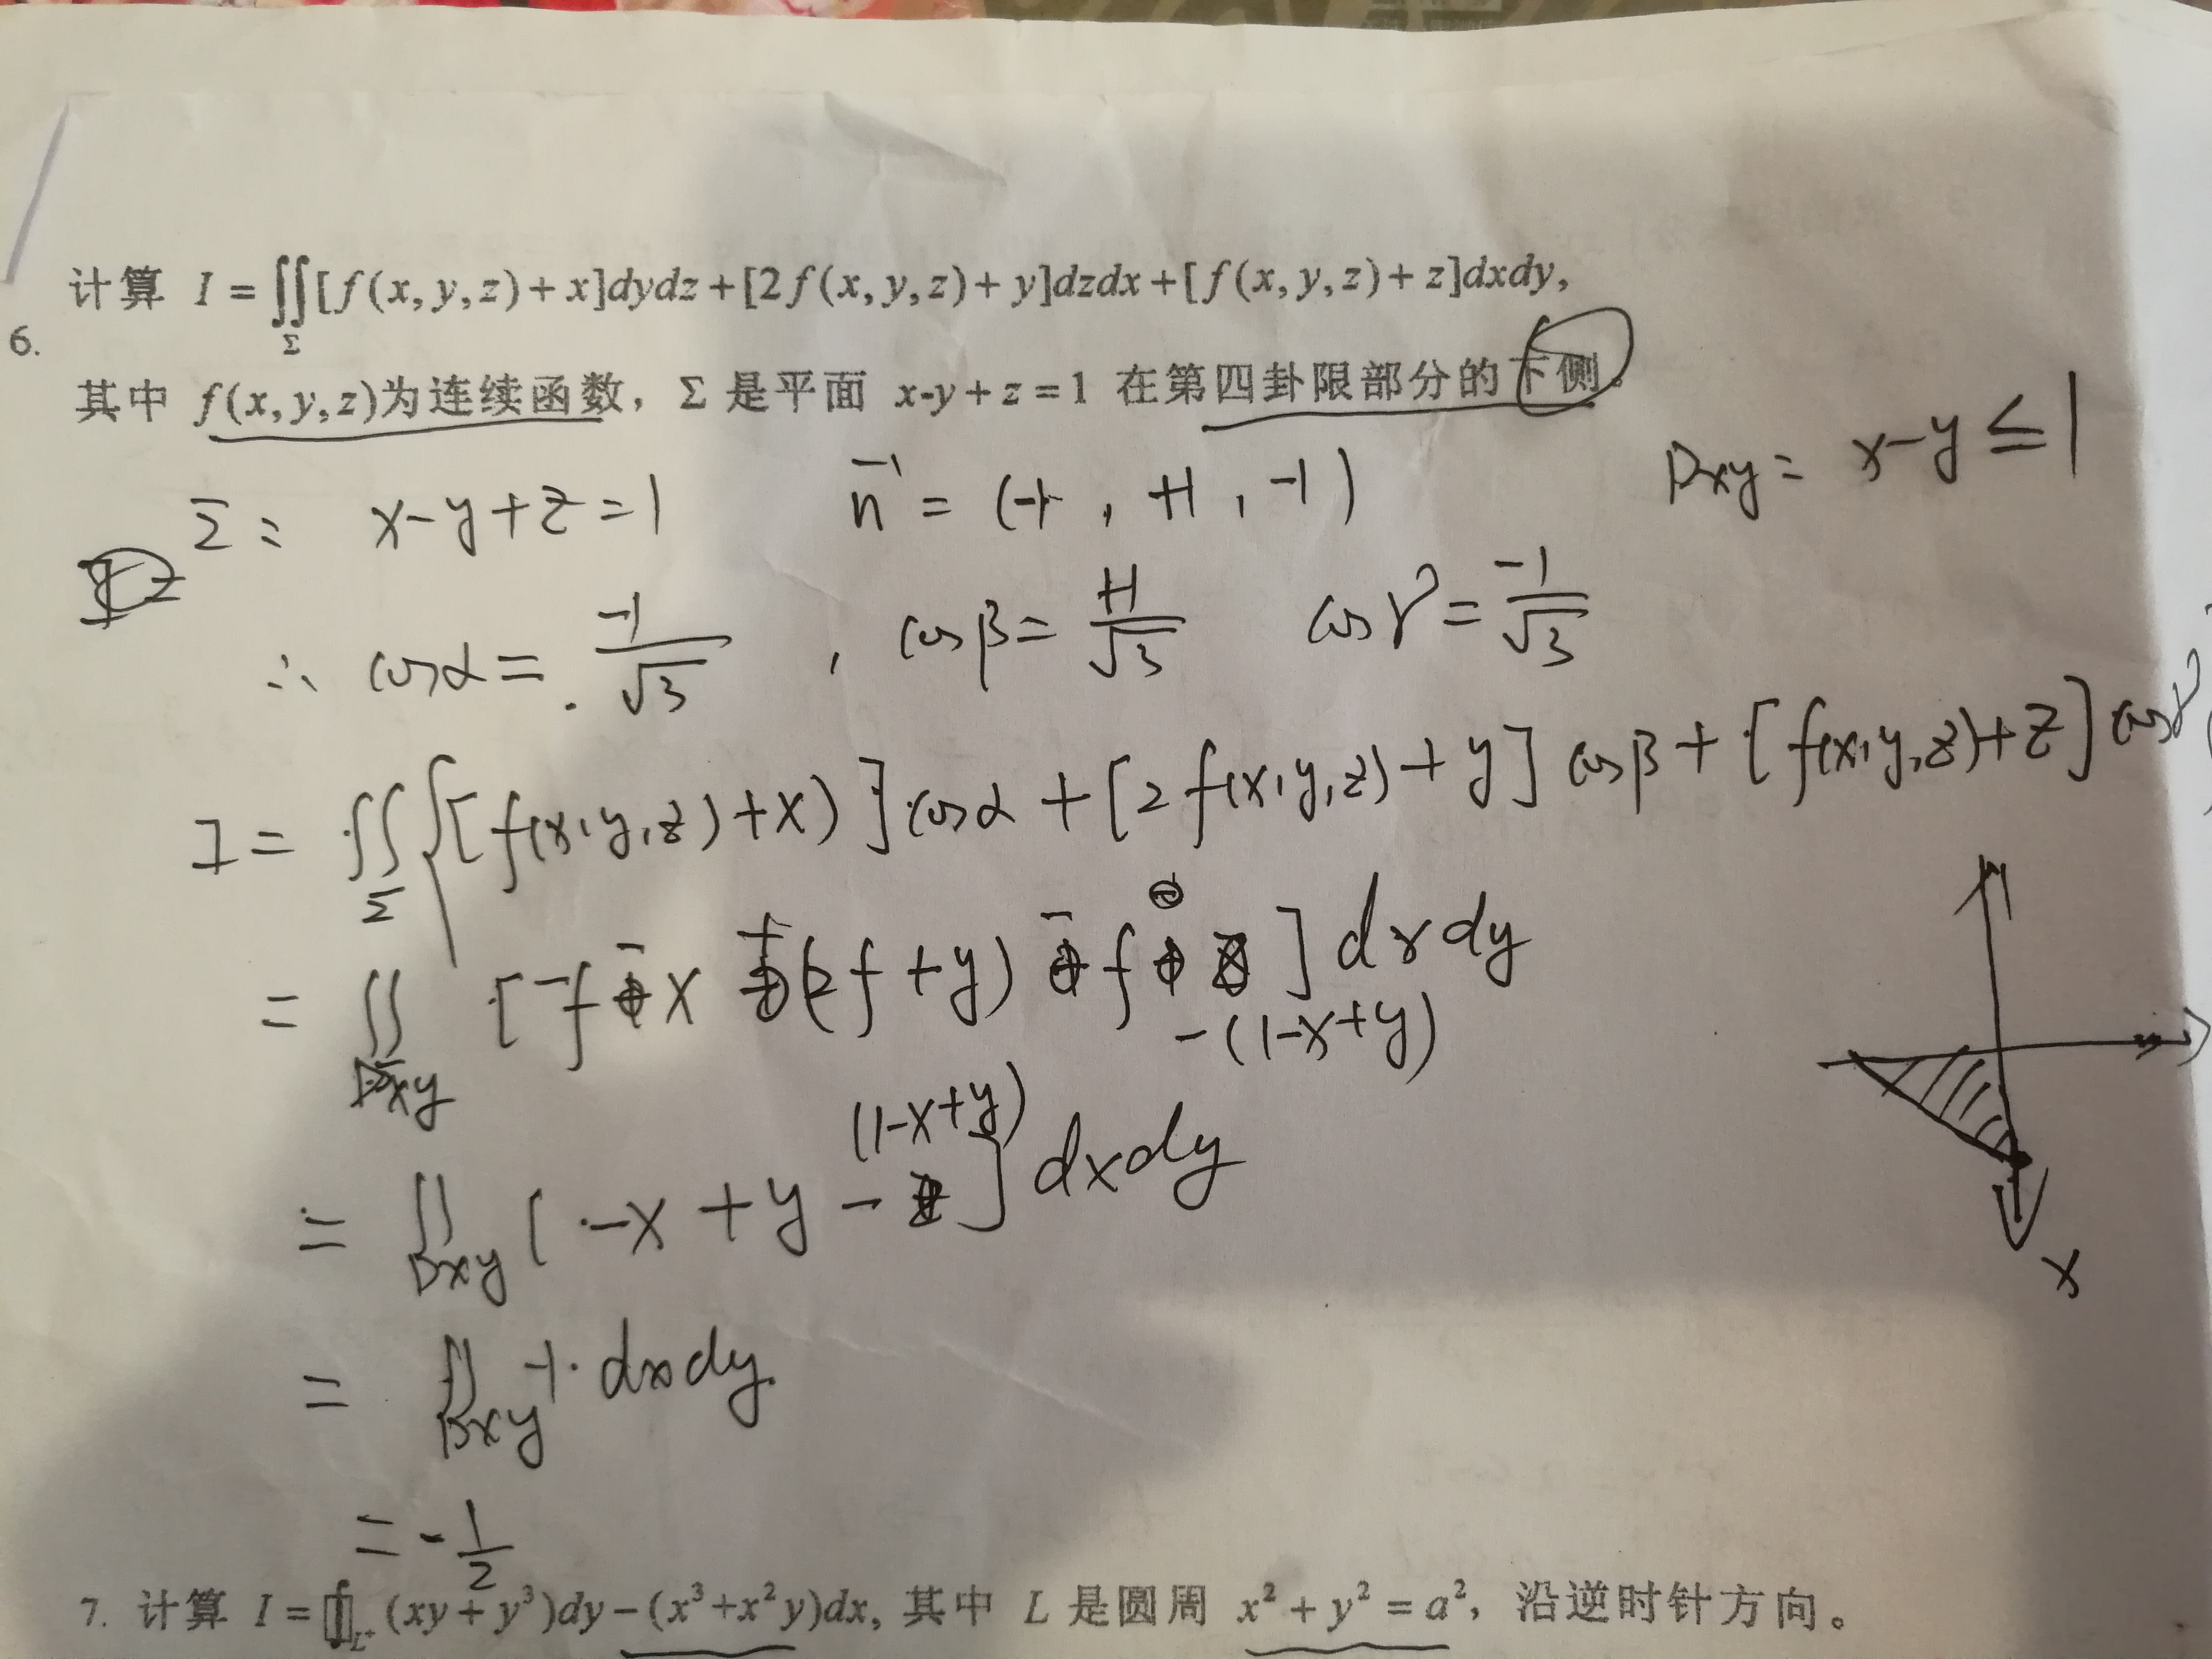 计算 I = ∬_Σ [f(x,y,z)+x]dydz+[2f(x,y,z)+y]dzdx+[f(x,y,z)+z]dxdy,
6.
其中 f(x,y,z)为连续函数，Σ 是平面 x-y+z=1 在第四卦限部分的下侧。
Dxy = x-y ≤ 1
Σ = x-y+z=1 n = (-1, +1, -1)
∴ cosα = -1/√3 , cosβ = +1/√3 cosγ = -1/√3
I = ∬_Σ {[f(x,y,z)+x)]cosα+[2f(x,y,z)+y]cosβ+[f(x,y,z)+z]cosγ
= ∬_Dxy [-f-x+(2f+y)-f-(1-x+y)]dxdy
= ∬_Dxy [-x+y-(1-x+y)]dxdy
x
= ∬_Dxy -1·dxdy
= -1/2
7. 计算 I = ∮_L+ (xy+y³)dy-(x³+x²y)dx, 其中 L 是圆周 x²+y²=a²，沿逆时针方向。